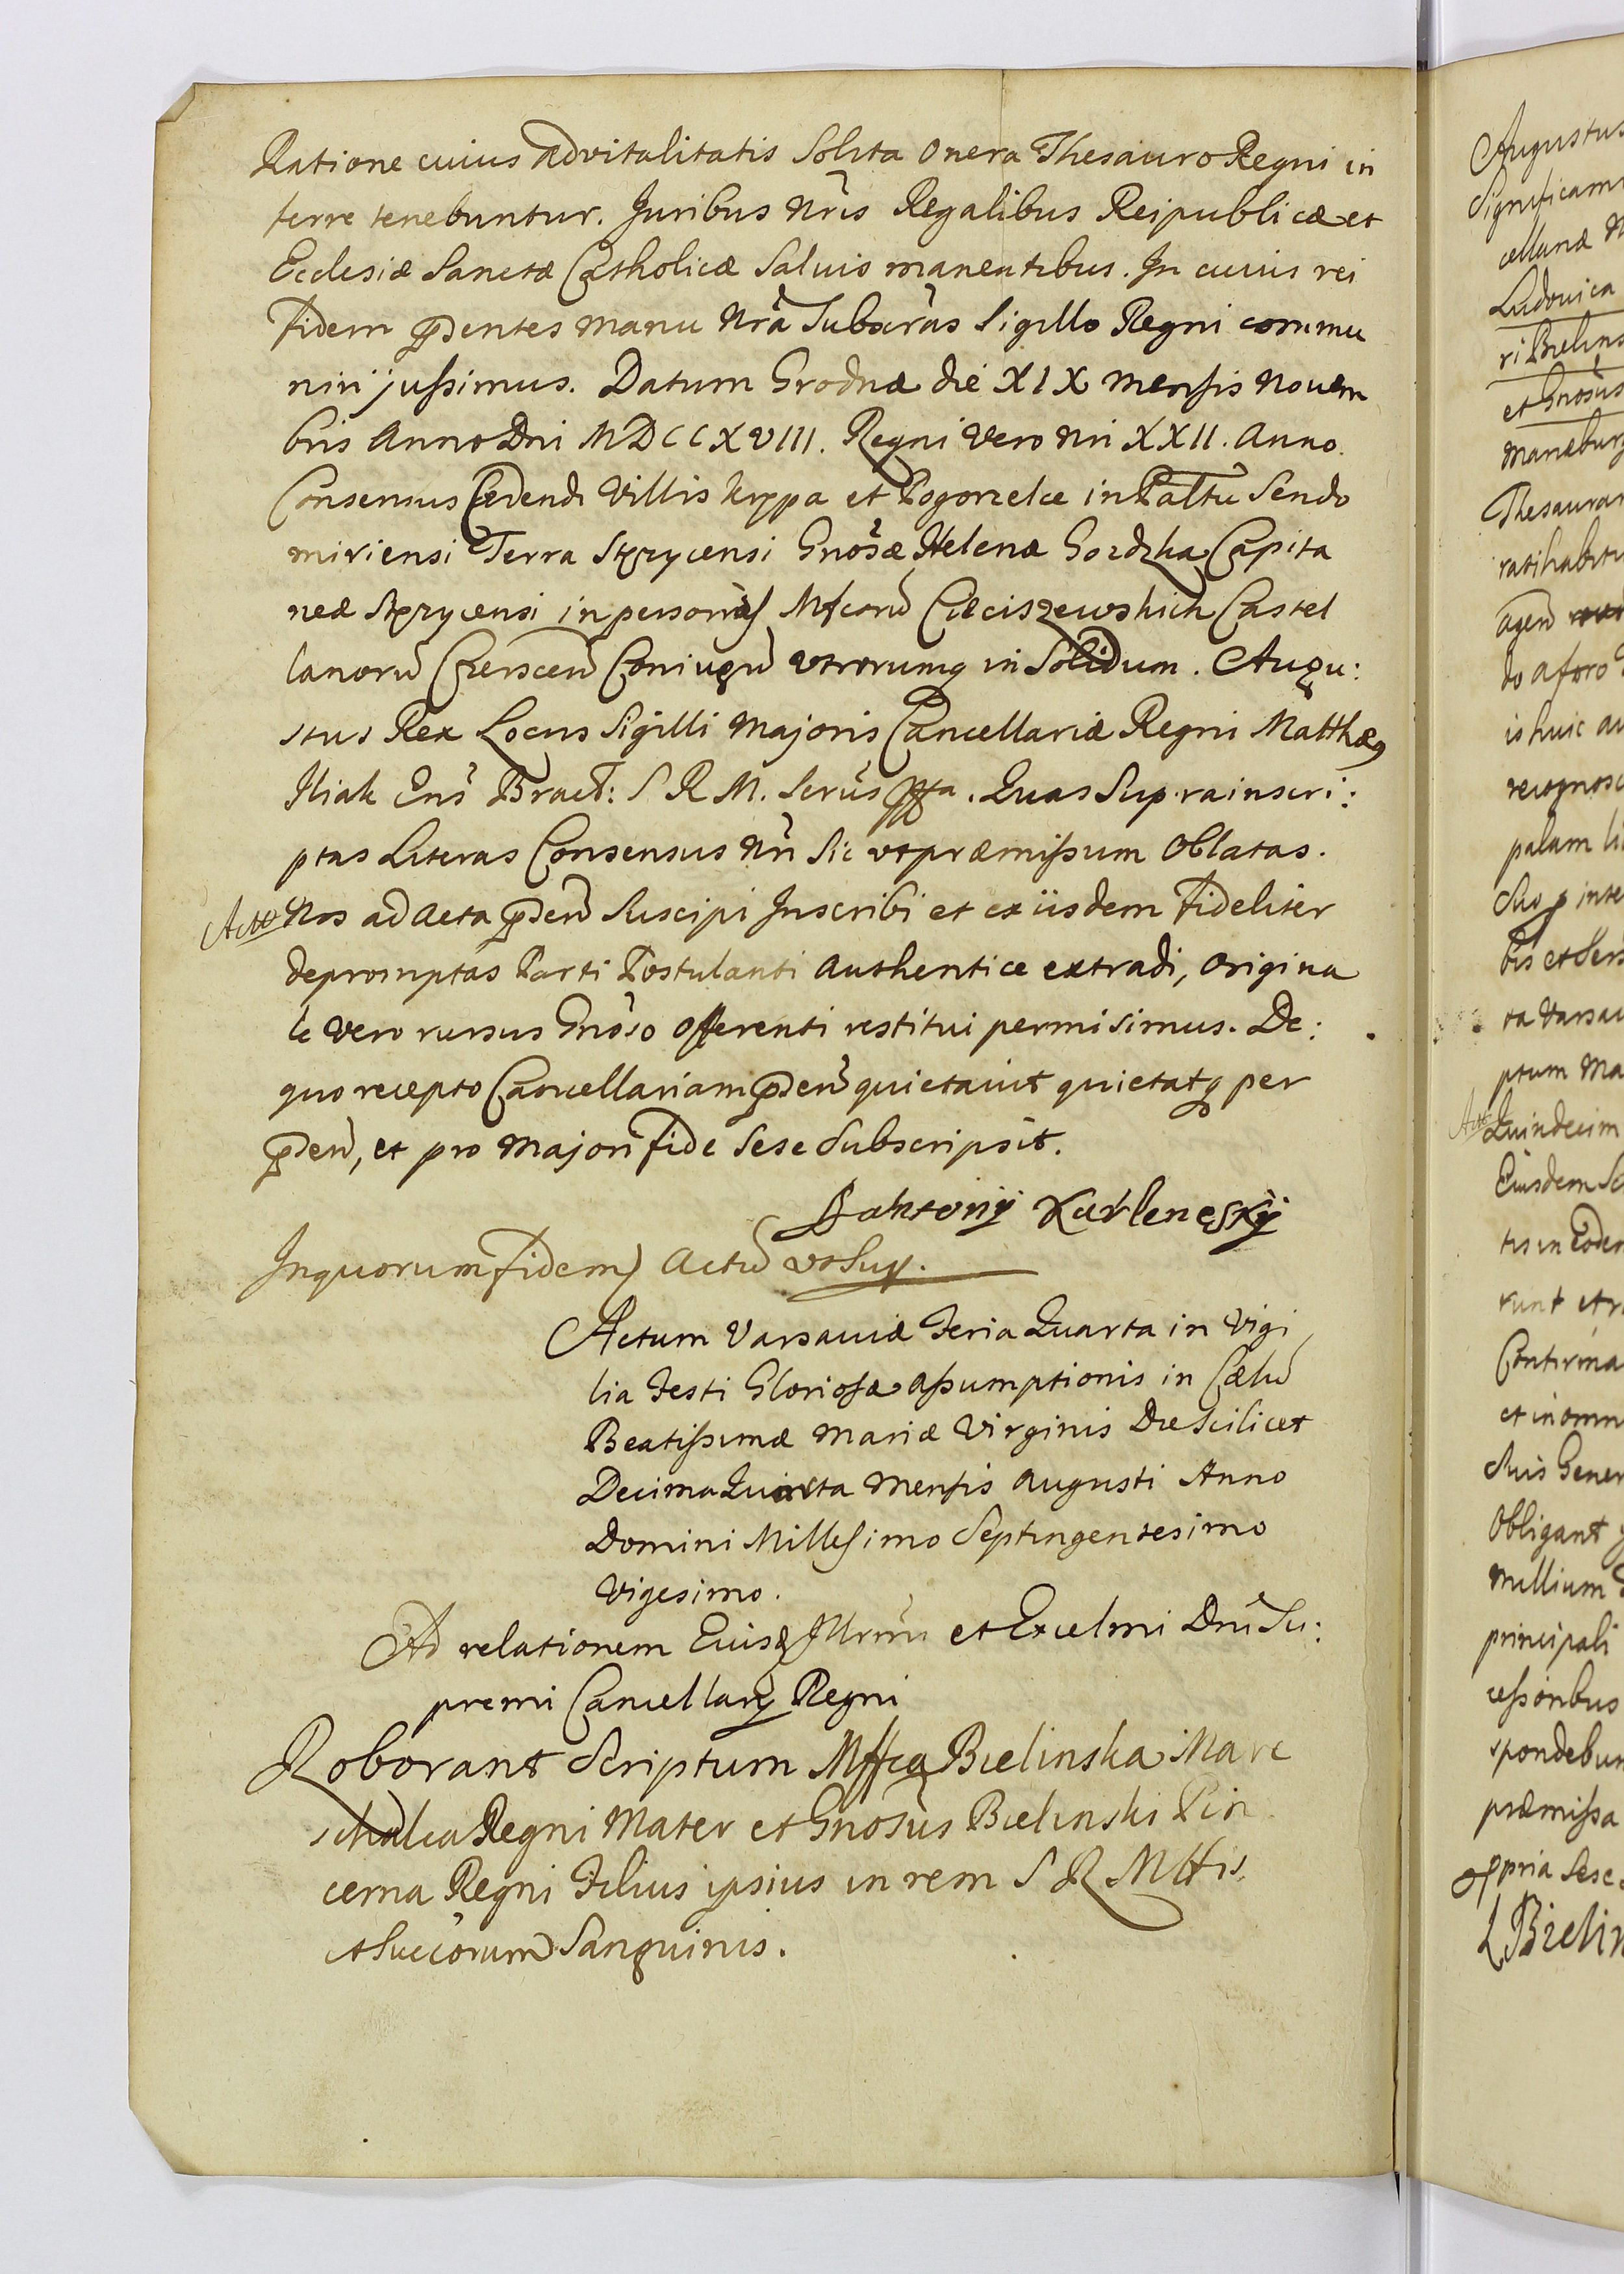 Ratione cuius advitalitatis Solita onera Thesauro Regni in
ferre tenebuntur. Juribus Nris Regalibus Reipublicæ et
Ecclesiæ Sanctæ Catholicæ Saluis manentibus. In cuius rei
fidem pdentes manu Nra Subscras Sigillo Regni commu
niri jussimus. Datum Grodnæ die XIX mensis Novem
bris Anno Dni MDCCXVIII. Regni Vero Nri XXII. Anno.
Consensus Cedendi Villis Kryppa et Pogorzelce in Palttu Sendo
miriensi Terra Stęzycensi Gnosæ Helenæ Gozdzka Capita
neæ Stęzycensi in personas Mfcoru Cieciszewskich Castel
lanoru Czerscen Coniugu utrorumq in Solidum. Augu:
stus Rex Locus Sigilli Majoris Cancellariæ Regni Matthæg
Iliak Ens Bract: S R M. Scrus ppa. Quas Suprainscri:
ptas Literas Consensus Nri Sic ut præmissum Oblatas.
Acto Nos ad Acta pden Suscipi Inscribi et ex iisdem fideliter
depromptas Parti Postulanti Authentice extradi, Origina
le Vero rursus Gnoso Offerenti restitui permisimus. De:
quo recepto Cancellariam pden quietavit quietatq per
pden, et pro Majori fide Sese Subscripsit.
In quorum fidem) Actu ut Sup.
Actum Varsaviæ Feria Quarta in Vigi
lia Festi Gloriosæ Assumptionis in Cælu
Beatissimæ Mariæ Virginis Die Scilicet
Decima Quinta Mensis Augusti Anno
Domini Millesimo Septingentesimo
Vigesimo.
Ad relationem Euisd Illrmi et Excelmi Dni Su:
premi Cancellarij Regni
Roborant Scriptum Mffca Bielinska Mare
schalca Regni Mater et Gnosus Bielinski Pin
cerna Regni Filius ipsius in rem S R Mttis
et Succorum Sanguinis.
Augustus
Significam
cellariæ
Ludovica
ri Bielins
et Gnosus
Thesaurar
ratihabitu
do a foro
is huic
recognosc
palam
Suo p inte
bis et
ta Varsav
ptum Ma
Quindecim
Eiusdem
tis in Eode
runt et
Confirma
et in omn
Suis Gener
Obligant
Millium
principali
cessoribus
spondebun
præmissa
ppria Sese
L Bielin